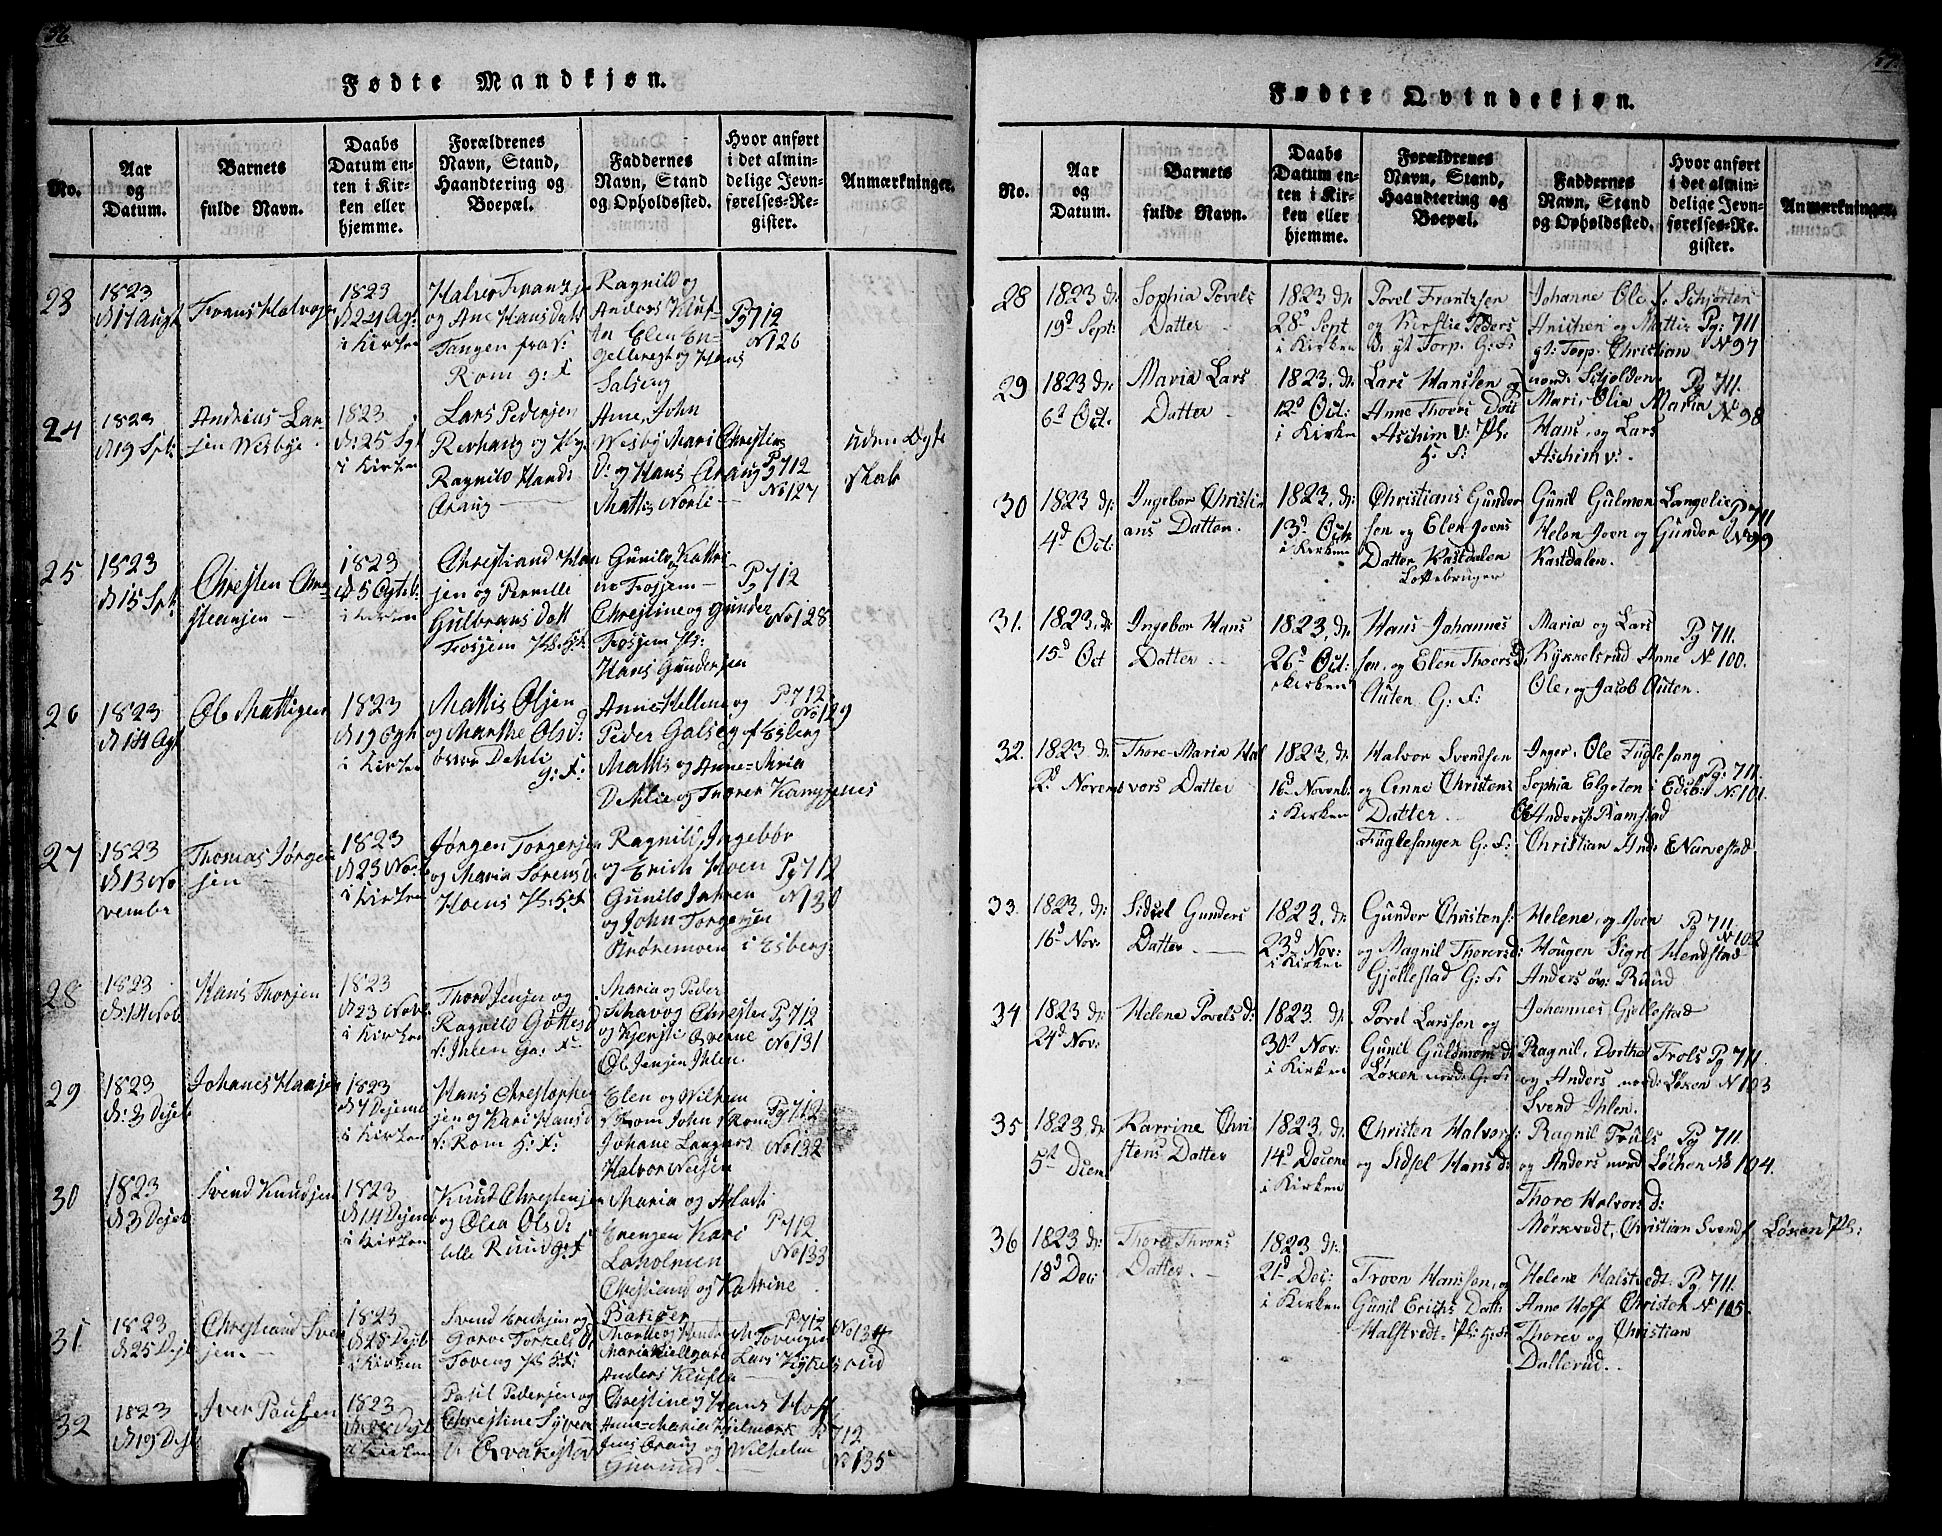 56
Fødte Mandkjøn.
No.
Aar
og
Datum.
Barnets
fulde Navn.
Daabs
Datum en-
ten i Kir-
ken eller
hjemme.
Forældrenes
Navn, Stand,
Haandtering og
Boepæl.
Faddernes
Navn, Stand
og Opholdssted.
Hvor anført
i det almin-
delige Jevn-
førelses-Re-
gister.
Anmærkninger.
23
1823
d 17 Augt
Frans Halvors
1823
d 24 Agt
i Kirken
Halvor Frantzs
og Ane Hans datt
Tangen fra v:
Rom g: F
Ragnild og
Anders Kluf-
ta Elen En-
Salseng
Pg 712
No 126
24
1823
d 19 Spt:
Andreas Lar
sen Wesbye
1823
d: 25 Spt
i Kirken
Lars Pedersen
Revhaug og Pig:
Ragnild Hansd
Araug
Anne, John
Wesby Mari Christine
d: og Hans Araug
Mattis Norli
Pg 712
No 127
uden Ægte
skab
25
1823
d 15 Spt:
Christen Chri-
stiansen
1823
d 5 Octb:
i Kirken
Christiand Han
sen og Pernille
Gulbrans Datt
Fossum Ph: H: F
Gunild Kathri-
ne Fossum
Christine og Gunder
Fossum Ph:
Hans Gundersen
Pg 712
No 128
26
1823
d 14 Agt
Ole Mattisen
1823
d 19 Octb
i Kirken
Mattis Olsen
og Marthe Olsd:
Dehli
g: F:
Anne-Hellene og
Peder Galseg af Esberg
Mattis og Anne-Maria
Dehlie og Thorer Kampenes
Pg 712
No 129
27
1823
d 13 No
vembr
Thomas Jørgen
sen
1823
d 23 Nov:
i Kirken
Jørgen Torgersen
og Maria Sørensd:
Hoens Ph: H: F
Ragnild, Ingebor
og Erich Hoen
Gunild Jahren
og John Torgersen
Andremoen i Esberg:
Pg 712
No 130
28
1823
d: 14 Nob
Hans Thorsen
1823
d 23 Nov:
i Kirken
Thord Jensen og
Ragnild Gottesd
v: Ihlen G: F:
Maria og Peder
Schavog Christen
og Kjersti Qverne
Ole Jensen Ihlen.
Pg 712
No 131
29
1823
d: 3 Desebr
Johanes Hansen
1823
d 7 Desemb
i Kirken
Hans Christophe
sen og Kari Hansd
v: Rom H: F:
Elen og Wilhem
v Rom John v Rom
Johane Langaas
Halvor Nersen
Pg 712
No 132
30
1823
d 3 Deseb
Svend Knudsen
1823
d 14 Desemb
i Kirken
Knud Christensen
og Olea Olsd:
lille Ruud g: F
Maria og Aslach
Erengen Kari
Laholmen
Christiand og Katrine
Bakger
Pg 712
No 133
31
1823
d 25 Desb
Christiand Sven
sen
1823
d 28 Desb
i Kirken
Svend Erichsen og
Gorve Torkels D:
Toveng Ph H: F:
Marthe og Knud Mr Tovengen
Maria Kiellgaard Lars Kykelsrud
Anders Klufta
Pg 712
No 134
32
1823
d 19 Desb
Iver Paulsen
1823
d 28 Desb
i Kirken
Paul Pedersen og
Christine Syver
v: Qvakestad
Christine og Hans Hoff
Anne-Maria Hjelmark
Jens Oraug og Wilhelm
Gunerud
Pg 712
No 135
57
Fødte Qvindekjøn.
No.
Aar
og
Datum.
Barnets
fulde Navn.
Daabs
Datum en-
ten i Kir-
ken eller
hjemme.
Forældrenes
Navn, Stand,
Haandtering og
Boepæl.
Faddernes
Navn, Stand
og Opholdssted.
Hvor anført
i det almin-
delige Jevn-
førelses-Re-
gister.
Anmærkninger.
28
1823 d:
19d Sept:
Sophia Povels
Datter
1823 d:
28d Sept
i Kirken
Povel Frantzsen
og Kirstie Peders
D: gt Torp. G: F:
Johanne Ole S: Schjorten
Anichen og Mattis
gt: Torp. Christian
nord: Schjolden
Pg: 711
No 97
29
1823 d:
6d Oct.
Maria Lars
Datter
1823, d:
12d Oct:
i Kirken
Lars Hanssen og
Anne Thoers Datt
Aschim v: Ph:
H: F:
Mari, Olia Maria
Hans, og Lars
Aschim v:
Pg 711.
No 98
30
1823 d:
4d Oct:
Ingebor Christi
ans Datter.
1823. d:
13d Oct:
i Kirken
Christians Gunder
sen og Elen Joens
Datter Kastdalen
Lottebruger
Gunil Gulmon Langelie
Helen Joen og Gunder
Kastdalen.
Pg 711
No 99
31.
1823. d:
15d Oct
Ingebor Hans
Datter
1823, d:
26d Oct:
i Kirken
Hans Johannes
sen, og Elen Thoers D:
Auten G: F:
Maria og Lars
Kykkelsrud Anne
Ole, og Jacob Auten.
Pg 711.
No 100.
32.
1823 d:
2d Novem
Thore-Maria Hal
vors Datter
1823 d:
16d Novemb:
i Kirken
Halvor Svendsen
og Anne Christens
Datter
Fuglesangen G: F:
Inger, Ole Fuglesang
Sophia Elgeton i Edsb:
Ole Anders: Ramstad
Christian And: E Narvestad
Pg: 711.
No 101.
33.
1823, d:
16d Nov:
Sidsel Gunders
Datter
1823, d:
23d Nov:
i Kirken
Gunder Christens:
og Magnil Thorersd:
Gjøllestad G: F:
Helene, og Joen
Hougen Sigrl Hendstad
Anders øv: Ruud
Johannes Gjøllestad
Pg 711
No 102
34
1823 d:
24d Nov:
Helene Povels d:
1823. d:
30d Nov:
i Kirken
Povel Larssen og
Gunil Guldmons d:
Løken nord: G: F:
Ragnil, Dorthe Trols
og Anders nord: Løken
Svend Ihlen.
Pg 711
No 103
35
1823, d:
5d Decem
Karrine Chri
stens Datter
1823, d:
14d Decem
i Kirken
Christen Halvors:
og Sidsel Hans d:
Ragnil Truls
og Anders nord Løchen
Thore Halvors d:
Mørkvedt, Christian Svends: Løken Ph:
Pg 711.
No 104.
36
1823 d:
18d Dec:
Thore Throns
Datter
1823 d:
21d Dec:
i Kirken
Troen Hanssen, og
Gunil Erichs Datt:
Halstvedt Ph: H: F:
Helene Halstvedt
Anne Hoff Christof
Thorer og Christian
Dallerud.
Pg: 711.
No 105.